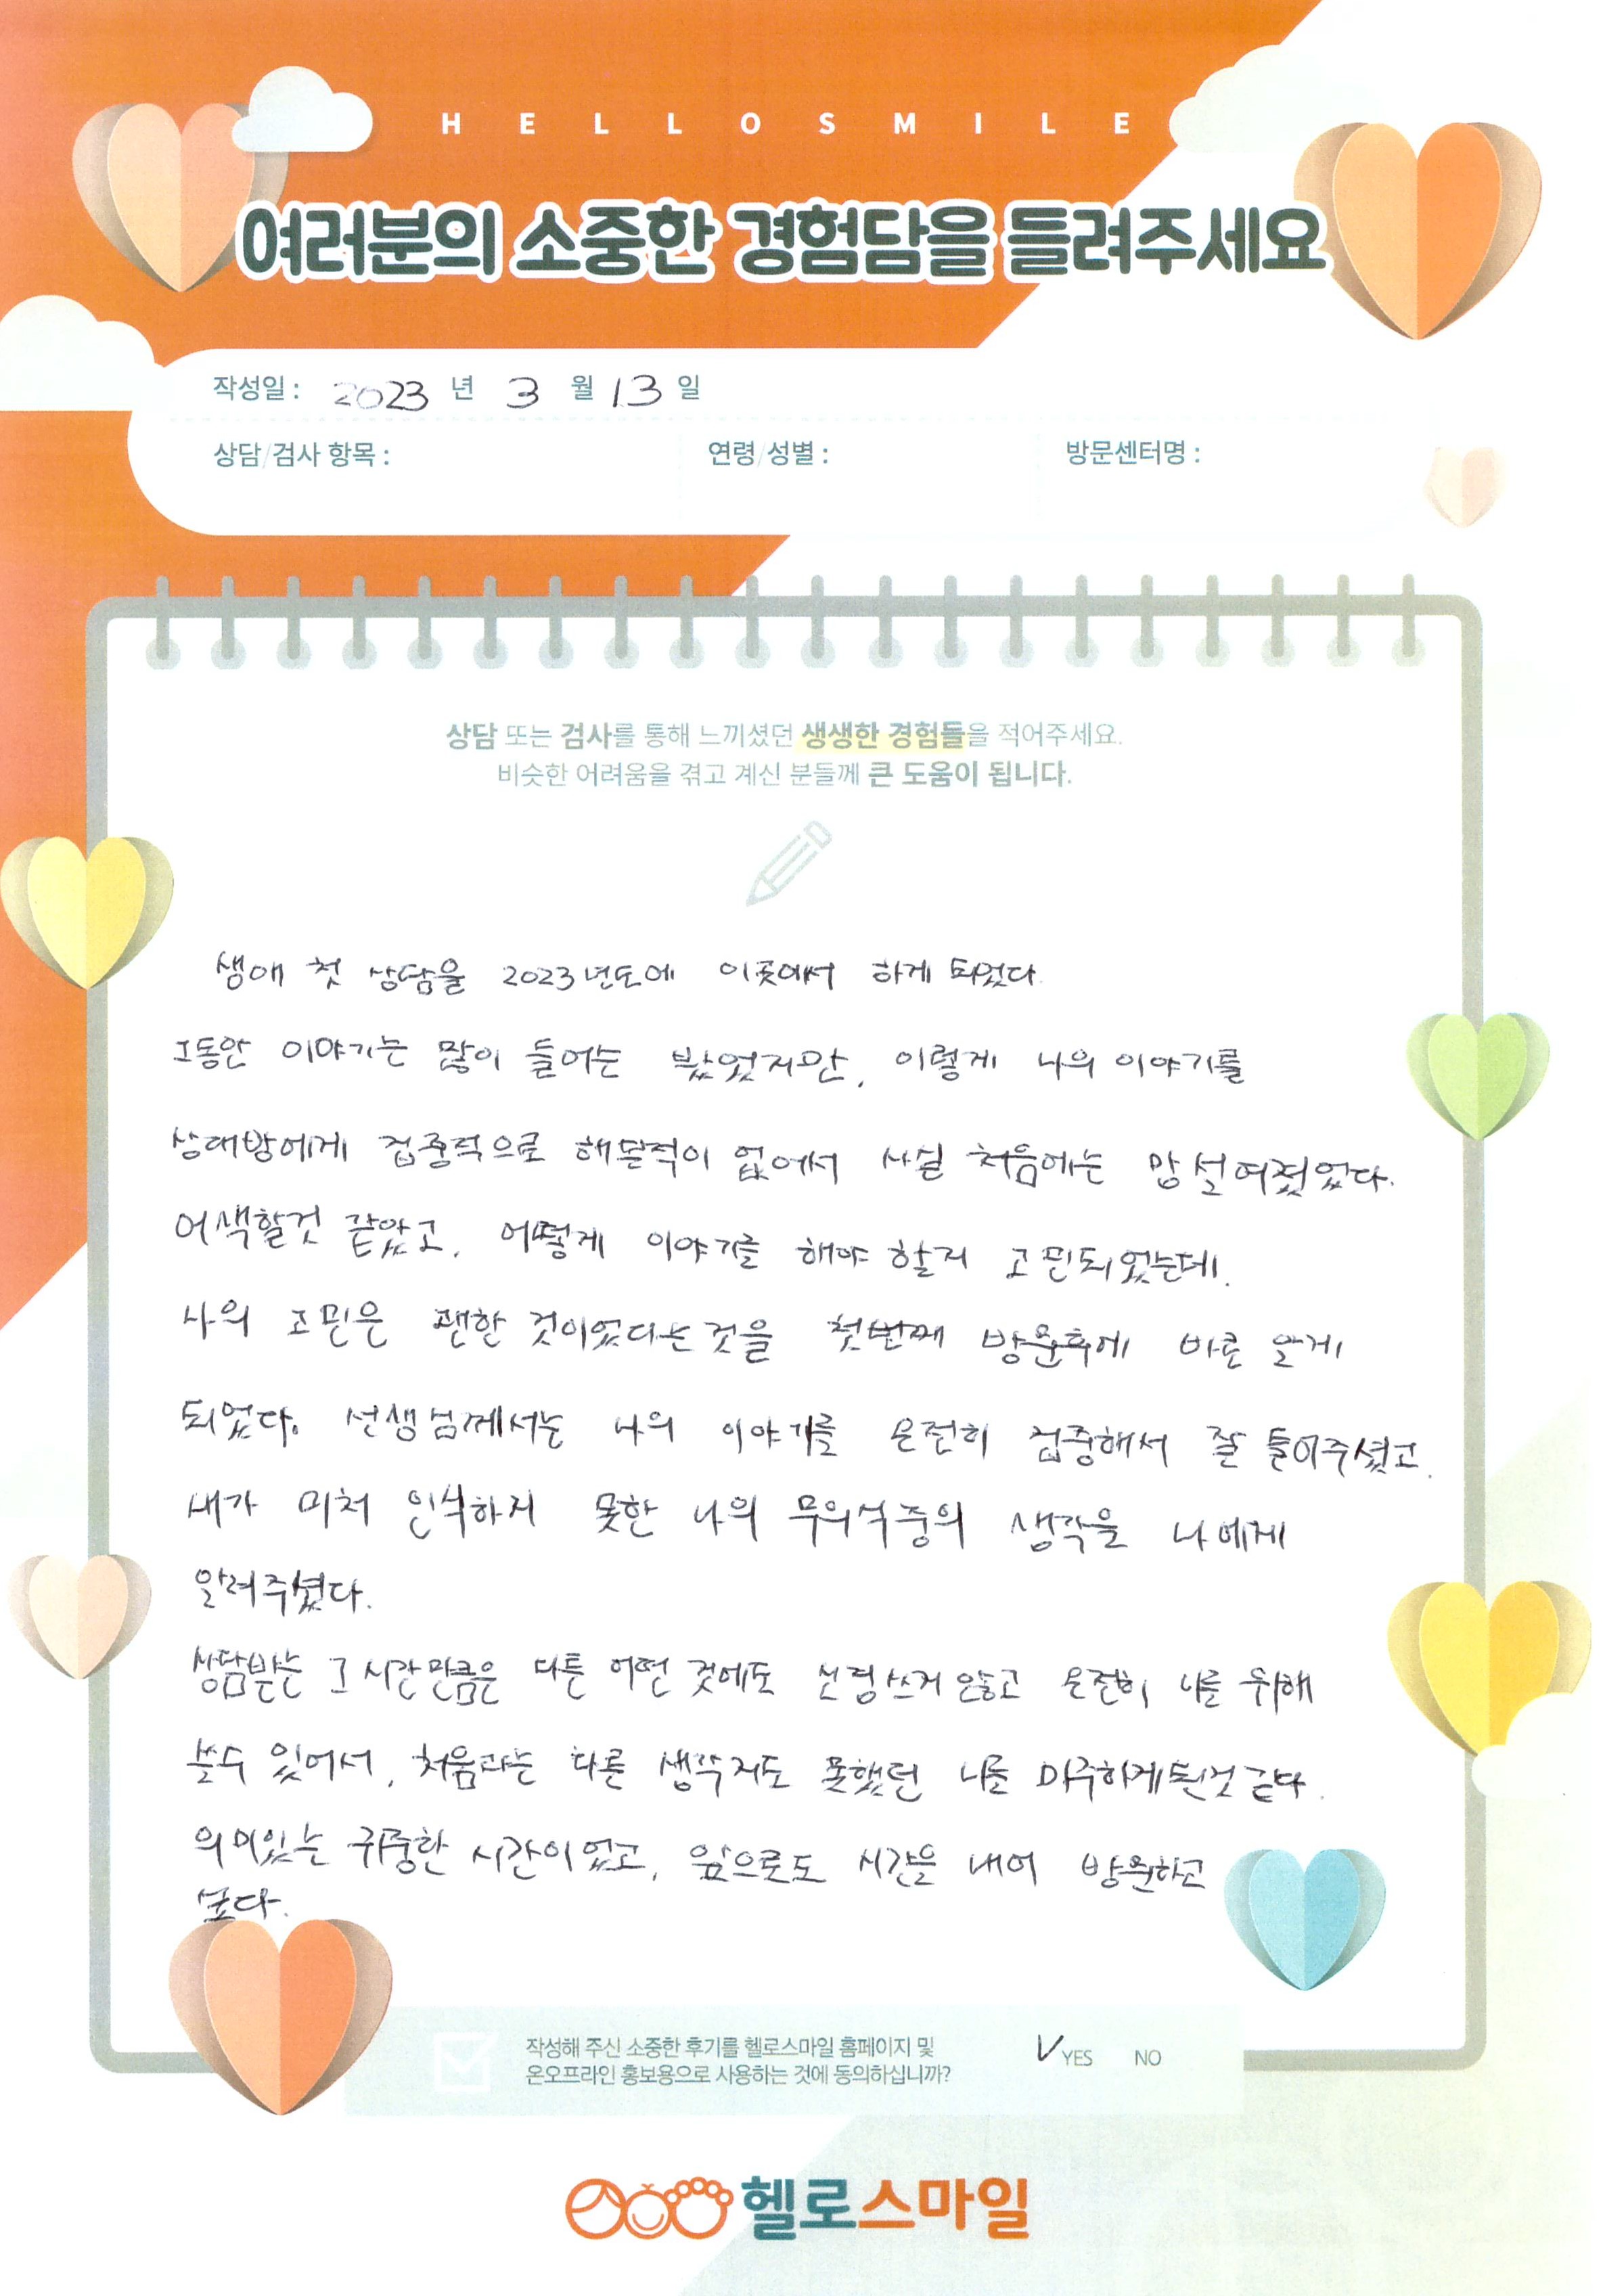 HELLOSMILE
여러분의 소중한 경험담을 들려주세요
작성일 : 2023 년 3 월 13 일
상담/검사 항목 : 연령/성별 : 방문센터명 :
상담 또는 검사를 통해 느끼셨던 생생한 경험들을 적어주세요.
비슷한 어려움을 겪고 계신 분들께 큰 도움이 됩니다.
생애 첫 상담을 2023년도에 이곳에서 하게 되었다.
그동안 이야기는 많이 들어는 봤었지만, 이렇게 나의 이야기를
상대방에게 집중적으로 해본적이 없어서 사실 처음에는 망설여졌었다.
어색할것 같았고, 어떻게 이야기를 해야 할지 고민되었는데,
나의 고민은 괜한 것이었다는것을 첫번째 방문후에 바로 알게
되었다. 선생님께서는 나의 이야기를 온전히 집중해서 잘 들어주셨고,
내가 미처 인식하지 못한 나의 무의식중의 생각을 나에게
알려주셨다.
상담받는 그 시간만큼은 다른 어떤 것에도 신경쓰지 않고 온전히 나를 위해
쓸수 있어서, 처음과는 다른 생각지도 못했던 나를 마주하게된것 같다.
의미있는 귀중한 시간이었고, 앞으로도 시간을 내어 방문하고
싶다.
작성해 주신 소중한 후기를 헬로스마일 홈페이지 및
온오프라인 홍보용으로 사용하는 것에 동의하십니까? V YES NO
헬로스마일